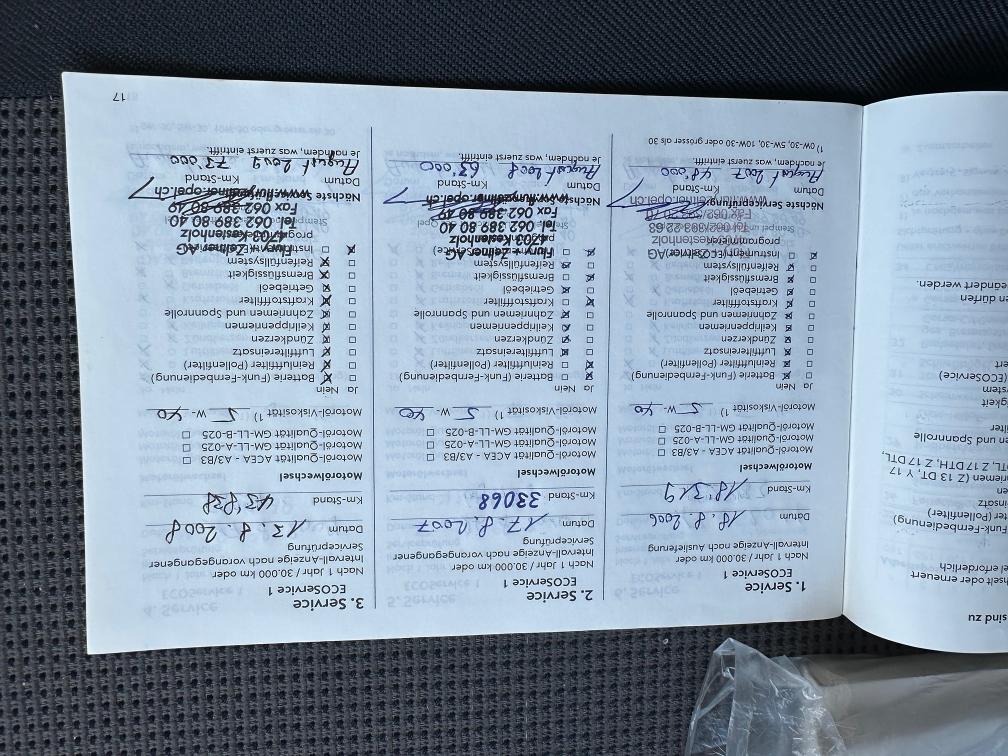 1. Service
ECOService 1
Nach 1 Jahr / 30.000 km oder
Intervall-Anzeige nach Auslieferung
Datum 18. 8. 2006
Km-Stand 18'319
Motorölwechsel
Motoröl-Qualität ACEA - A3/B3 □
Motoröl-Qualität GM-LL-A-025 □
Motoröl-Qualität GM-LL-B-025 □
Motoröl-Viskosität 1) 5 -W- 40
Ja Nein
Batterie (Funk-Fernbedienung)
Reinluftfilter (Pollenfilter)
Luftfiltereinsatz
Zündkerzen
Keilrippenriemen
Zahnriemen und Spannrolle
Kraftstofffilter
Getriebeöl
Bremsflüssigkeit
Reifenfüllsystem
Instrument (ECOService)
programmieren
Nächste Serviceprüfung
Datum Km-Stand
August 2007 48'000
Je nachdem, was zuerst eintrifft.
1) 0W-30, 5W-30, 10W-30 oder grosser als 30
2. Service
ECOService 1
Nach 1 Jahr / 30.000 km oder
Intervall-Anzeige nach vorangegangener
Serviceprüfung
Datum 17. 8. 2007
Km-Stand 33068
Motorölwechsel
Motoröl-Qualität ACEA - A3/B3 □
Motoröl-Qualität GM-LL-A-025 □
Motoröl-Qualität GM-LL-B-025 □
Motoröl-Viskosität 1) 5 -W- 40
Ja Nein
Batterie (Funk-Fernbedienung)
Reinluftfilter (Pollenfilter)
Luftfiltereinsatz
Zündkerzen
Keilrippenriemen
Zahnriemen und Spannrolle
Kraftstofffilter
Getriebeöl
Bremsflüssigkeit
Reifenfüllsystem
Flury + Zeltner AG
4703 Kestenholz
Tel. 062 389 80 40
Fax 062 389 80 49
Nächste
Datum Km-Stand
August 2008 63'000
Je nachdem, was zuerst eintrifft.
3. Service
ECOService 1
Nach 1 Jahr / 30.000 km oder
Intervall-Anzeige nach vorangegangener
Serviceprüfung
Datum 13. 8. 2008
Km-Stand 43'838
Motorölwechsel
Motoröl-Qualität ACEA - A3/B3 □
Motoröl-Qualität GM-LL-A-025 □
Motoröl-Qualität GM-LL-B-025 □
Motoröl-Viskosität 1) 5 -W- 40
Ja Nein
Batterie (Funk-Fernbedienung)
Reinluftfilter (Pollenfilter)
Luftfiltereinsatz
Zündkerzen
Keilrippenriemen
Zahnriemen und Spannrolle
Kraftstofffilter
Getriebeöl
Bremsflüssigkeit
Reifenfüllsystem
Flury + Zeltner AG
4703 Kestenholz
Tel. 062 389 80 40
Fax 062 389 80 49
Nächste
Datum Km-Stand
August 2009 73'000
Je nachdem, was zuerst eintrifft.
17